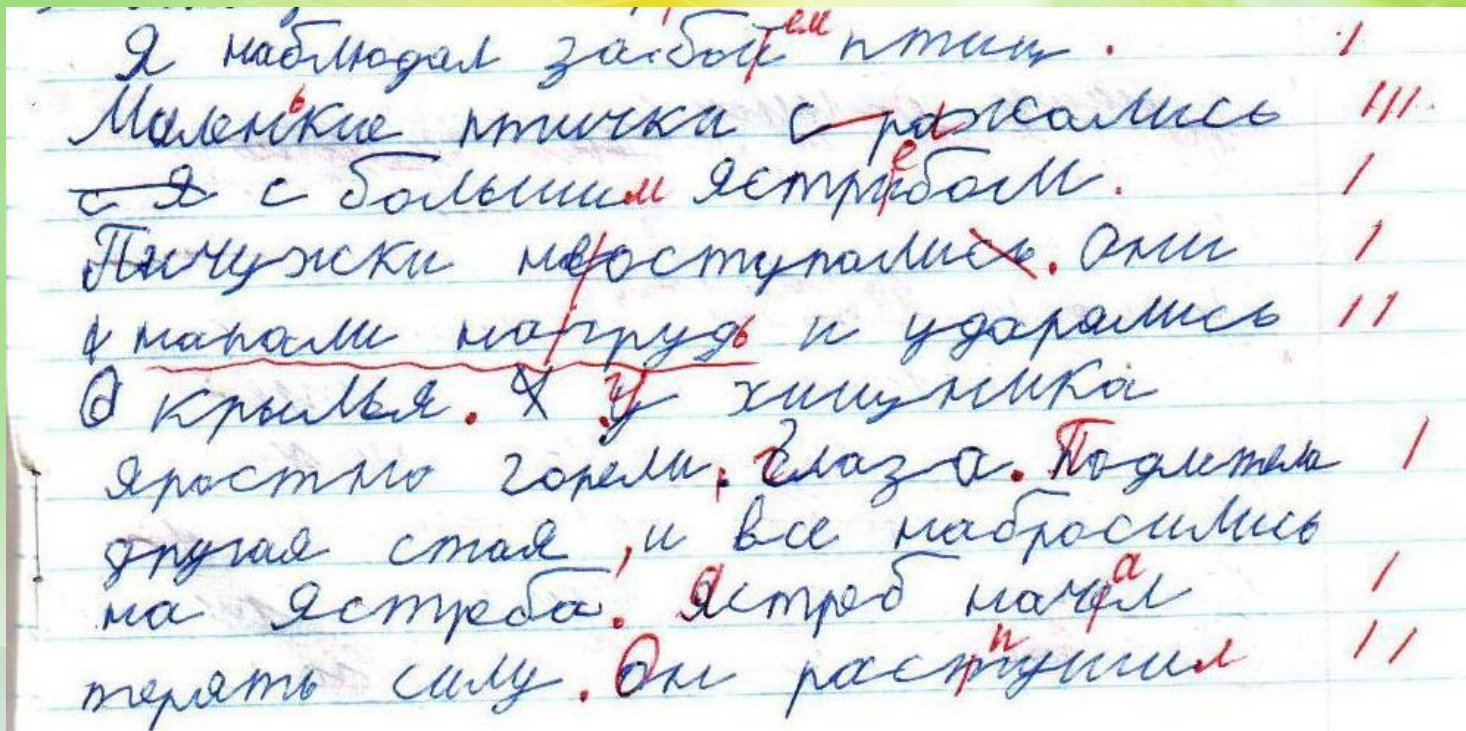 Я наблюдал за боем птиц.
Маленькие птички сражались
с большим ястребом.
Пичужки не отступали. Они
напали на грудь и ударялись
о крылья. У хищника
яростно горели глаза. Подлетела
другая стая, и все набросились
на ястреба. Ястреб начал
терять силу. Он распушил